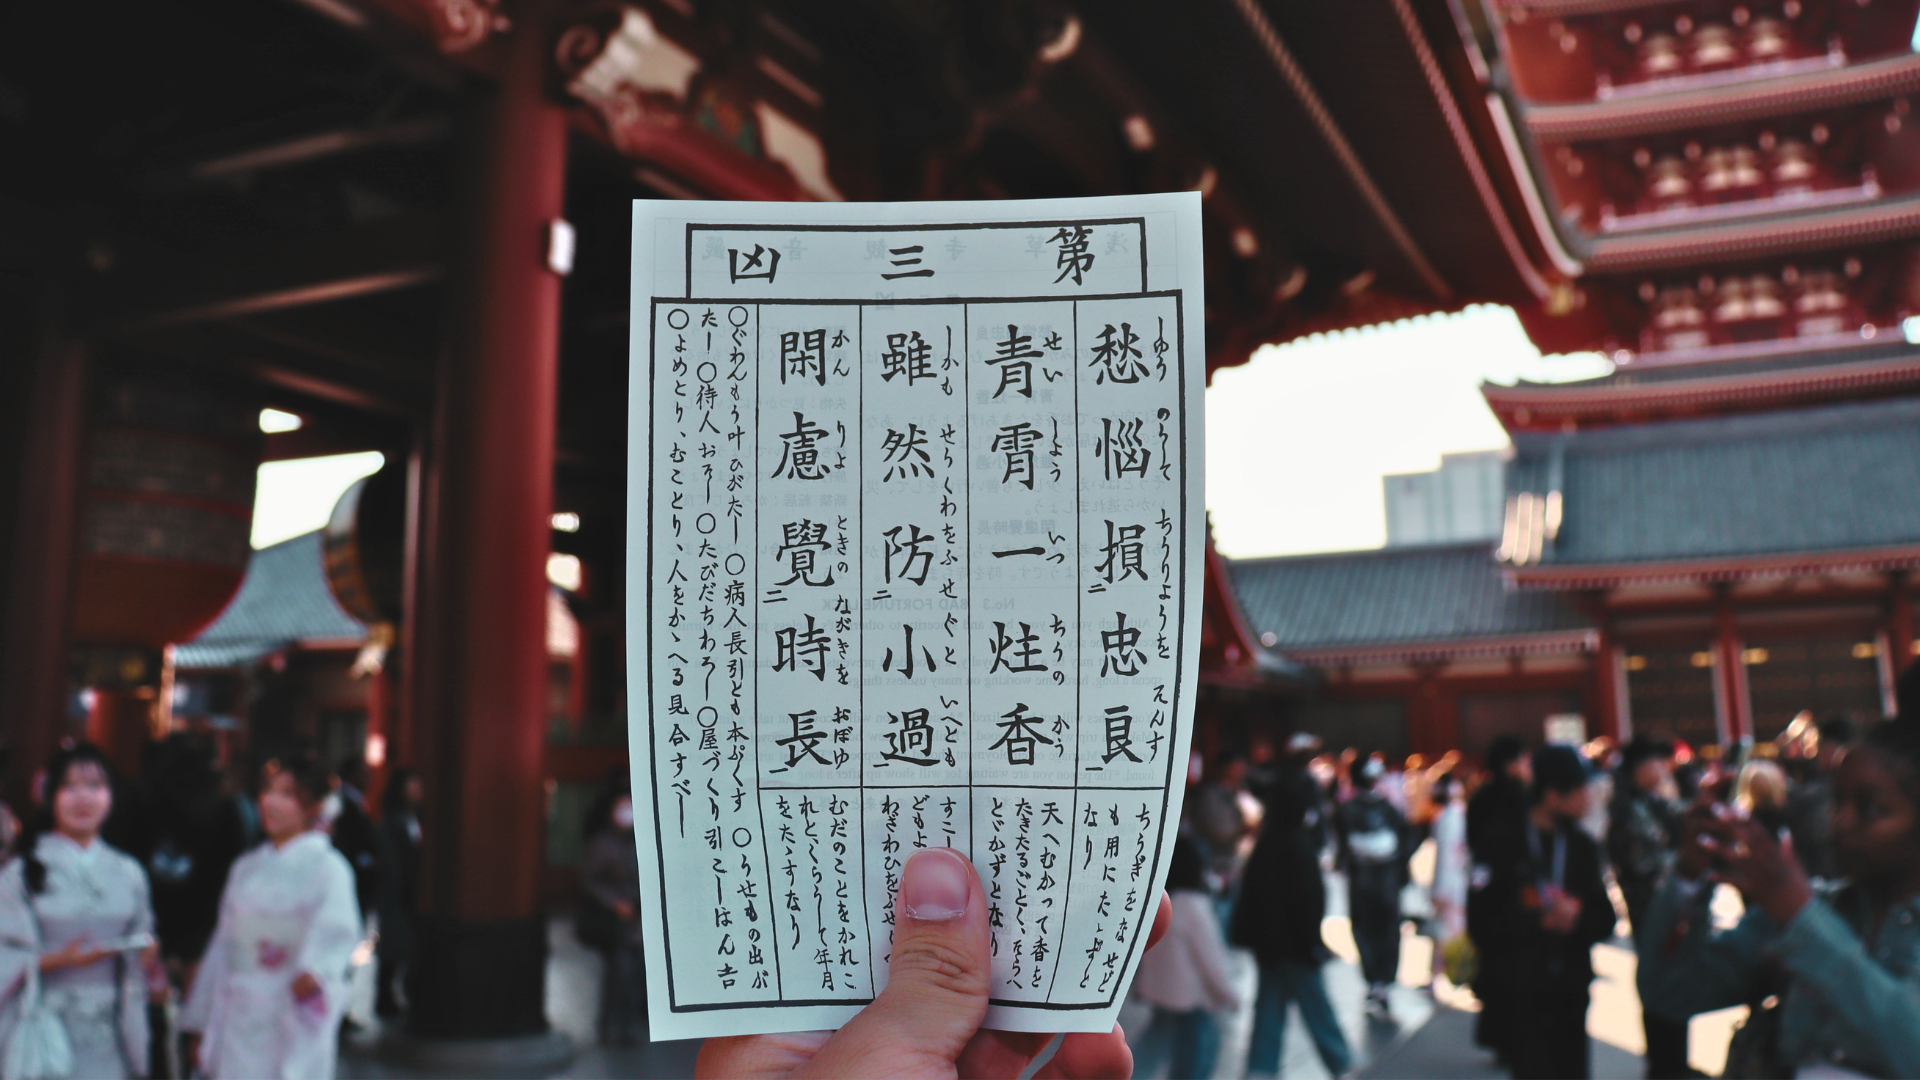 第三凶
愁惱損二忠良一
しゆう のうして ちうりようを そんす
ちうぎをなせど
も用にたゝずと
なり
青霄一炷香
せい しよう いつ ちうの かう
天へむかつて香を
たきたるごとく、そらへ
とゞかずとなり
雖然防二小過一
しかも せうくわをふせぐと いへども
すこし
どもよ
わざわひをふせ
閑慮覺二時長一
かん りよ ときの ながきを おぼゆ
むだのことをかれこ
れとくらうして年月
をたゝすなり
〇ぐわんもう叶ひがたし 〇病人長引とも本ぷくす 〇うせもの出が
たし 〇待人おそし 〇たびだちわろし 〇屋づくり引こしはん吉
〇よめとり、むことり、人をかゝへる見合すべし
No.3 BAD FORTUNE